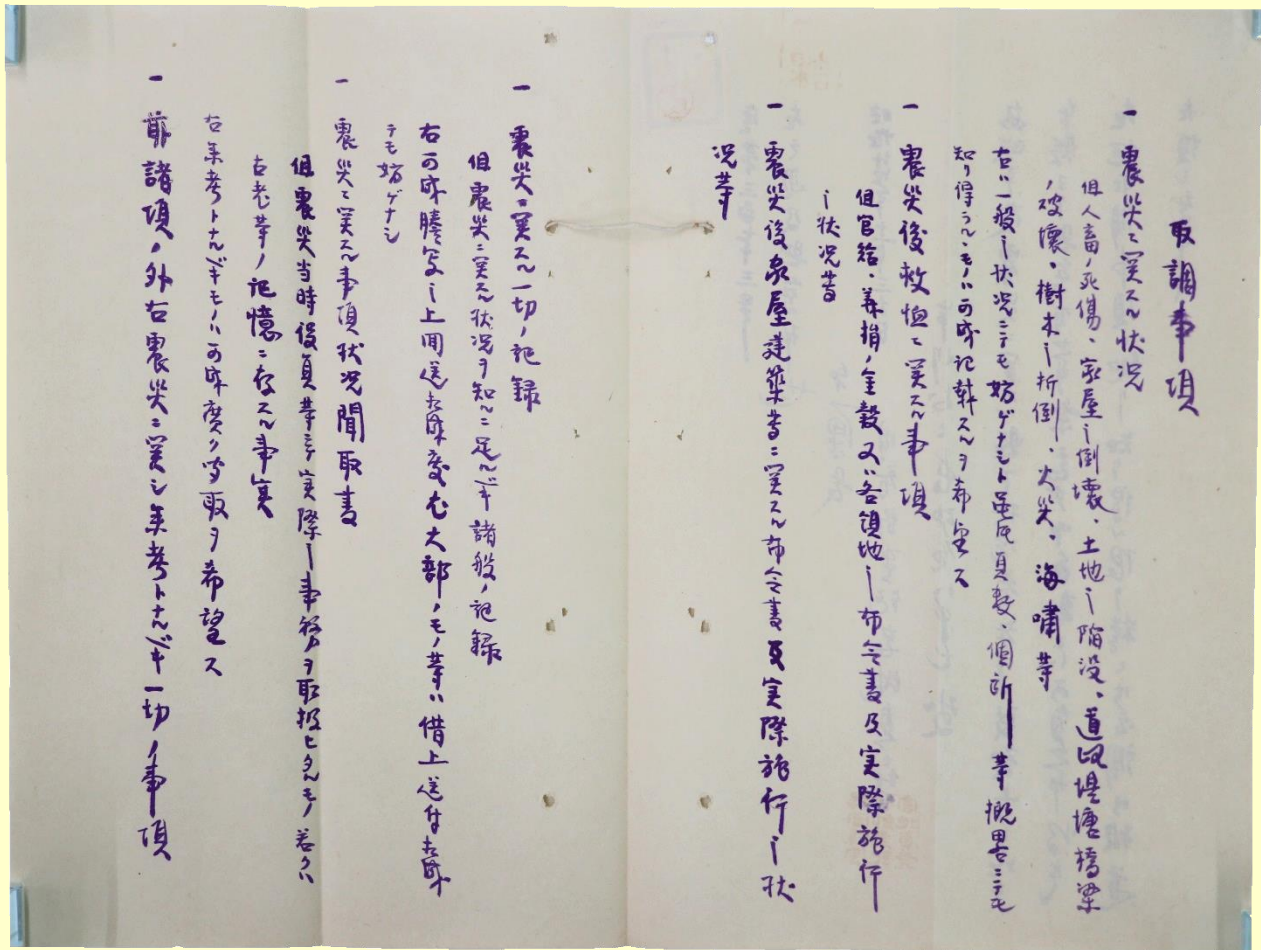 取調事項
一 震災ニ関スル状况
但人畜ノ死傷、家屋ノ倒壊、土地ノ陥没、道路堤塘橋梁
ノ破壊、樹木ノ折倒、火災、海嘯等
右ハ一般ノ状况ニテモ妨ゲナシト雖氏員数、個所等概畧ニテモ
知リ得ラルヽモノハ可成記載スルヲ希望ス
一 震災後救恤ニ関スル事項
但官給、義捐ノ金穀又ハ各領地ノ布令書及実際施行
ノ状况等
一 震災後家屋建築等ニ関スル布令書及実際施行ノ状
况等
一 震災ニ関スル一切ノ記録
但震災ニ関スル状况ヲ知ルニ足ルベキ諸般ノ記録
右可成謄写ノ上回送相成度尤大部ノモノ等ハ借上送付相成
テモ妨ゲナシ
一 震災ニ関スル事項状况聞取書
但震災当時役員等ニテ実際ノ事務ヲ取扱ヒタルモノ若クハ
古老等ノ記憶ニ存スル事実
右参考トナルベキモノハ可成広ク聞取ヲ希望ス
一 前諸項ノ外右震災ニ関シ参考トナルベキ一切ノ事項